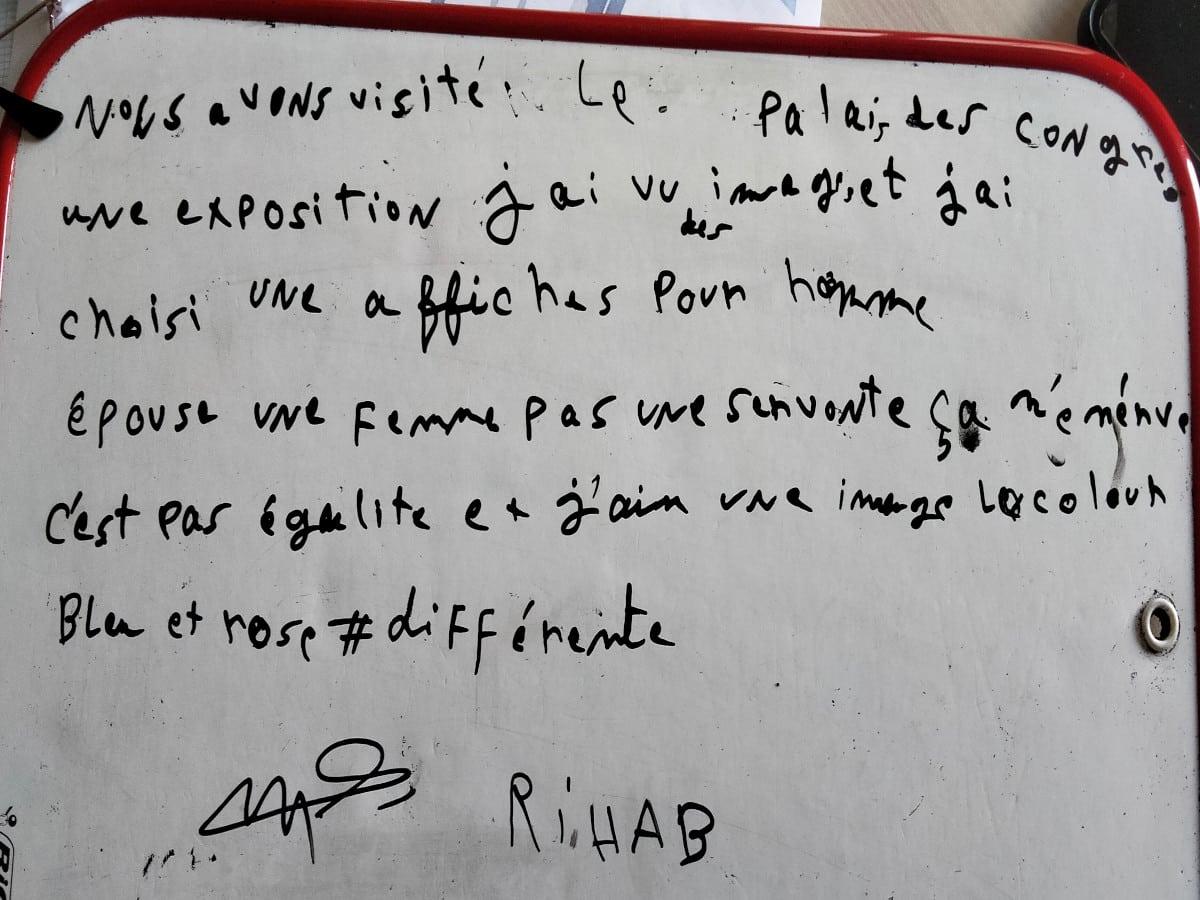 Nous avons visité Le Palais des congres
une exposition j ai vu des images, et j ai
choisi une affiches pour homme
épouse une femme pas une servonte ça m'éménve
c'est pas égalite et j'aim une image la colour
Bleu et rose # différente
RiHAB